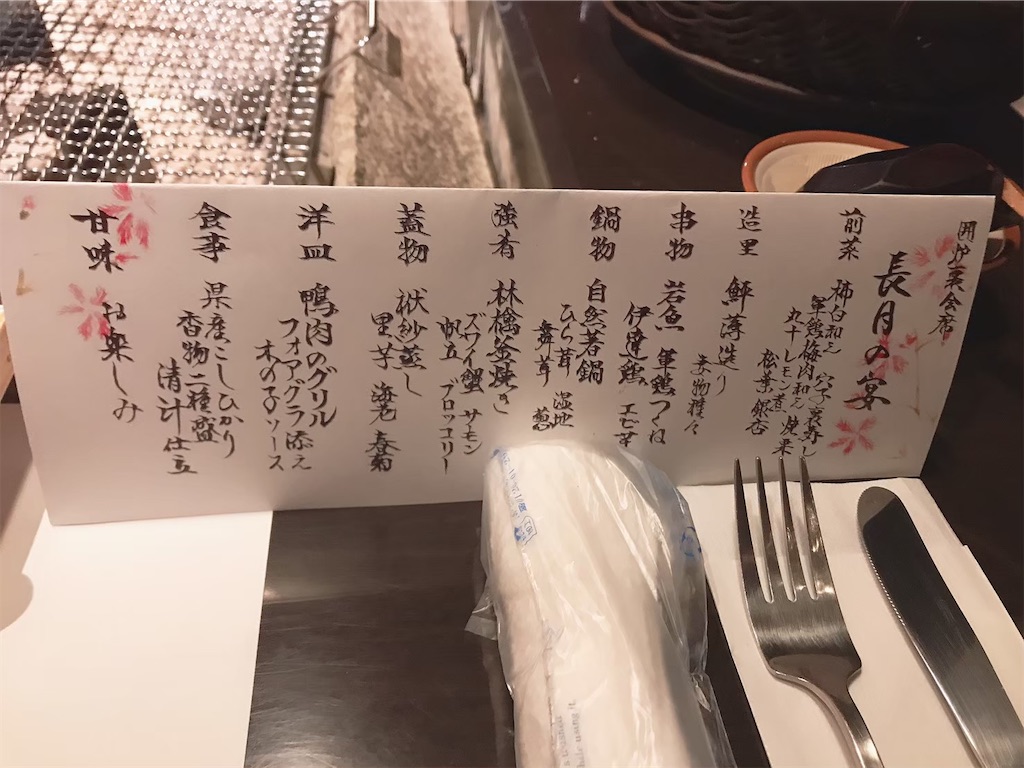 囲炉裏会席
長月の宴
前菜
柿白和え 穴子裏寿し
軍鶏梅肉和え 焼栗
丸十レモン煮
松葉銀杏
造里
鮃薄造り
妻物種々
串物
岩魚 軍鶏つくね
伊達鶏 エビ芋
鍋物
自然薯鍋
ひら茸 湿地
舞茸 葱
強肴
林檎釜焼き
ズワイ蟹 サーモン
帆立 ブロッコリー
蓋物
袱紗蒸し
里芋 海老 春菊
洋皿
鴨肉のグリル
フォアグラ添え
木の子ソース
食事
県産こしひかり
香物二種盛
清汁仕立
甘味
お楽しみ